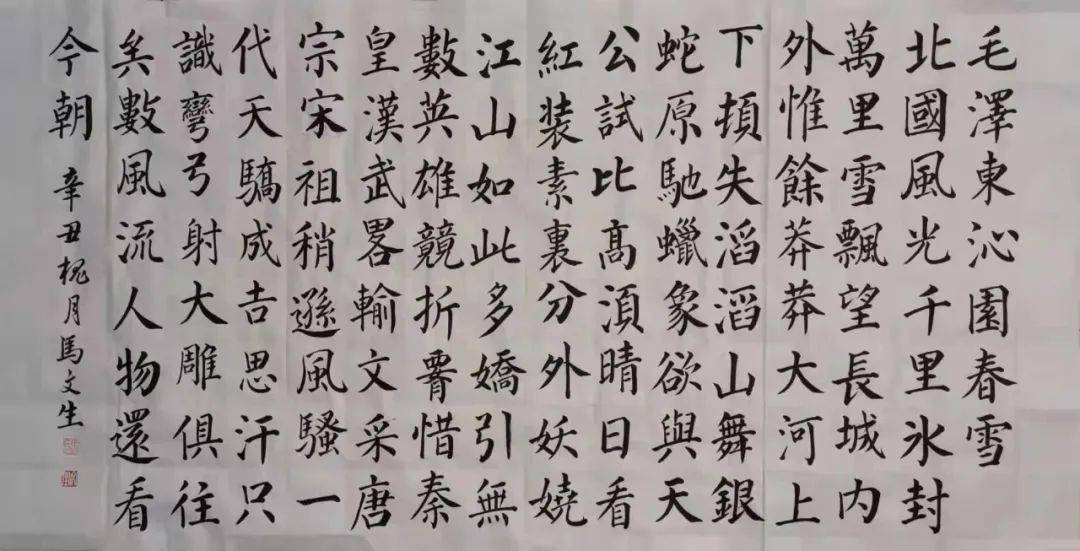 毛澤東沁園春雪
北國風光千里氷封
萬里雪飄望長城内
外惟餘莽莽大河上
下頓失滔滔山舞銀
蛇原馳蠟象欲與天
公試比髙湏晴日看
紅裝素裹分外妖嬈
江山如此多嬌引無
數英雄競折惜秦
皇漢武畧輸文采唐
宗宋祖稍遜風騷一
代天驕成吉思汗只
識彎弓射大雕俱往
矣數風流人物還看
今朝 辛丑槐月馬文生